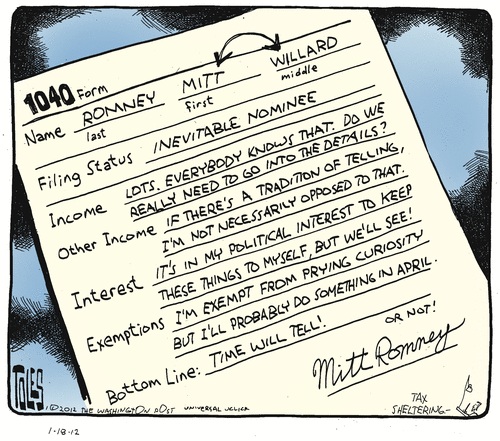 1040 Form
Name ROMNEY MITT WILLARD
last first middle
Filing Status INEVITABLE NOMINEE
Income LOTS. EVERYBODY KNOWS THAT. DO WE
REALLY NEED TO GO INTO THE DETAILS?
Other Income IF THERE'S A TRADITION OF TELLING,
I'M NOT NECESSARILY OPPOSED TO THAT.
Interest IT'S IN MY POLITICAL INTEREST TO KEEP
THESE THINGS TO MYSELF, BUT WE'LL SEE!
Exemptions I'M EXEMPT FROM PRYING CURIOSITY
BUT I'LL PROBABLY DO SOMETHING IN APRIL.
Bottom Line: TIME WILL TELL! OR NOT!
Mitt Romney
TAX
SHELTERING-
TOLES
©2012 THE WASHINGTON POST UNIVERSAL UCLICK
1-18-12